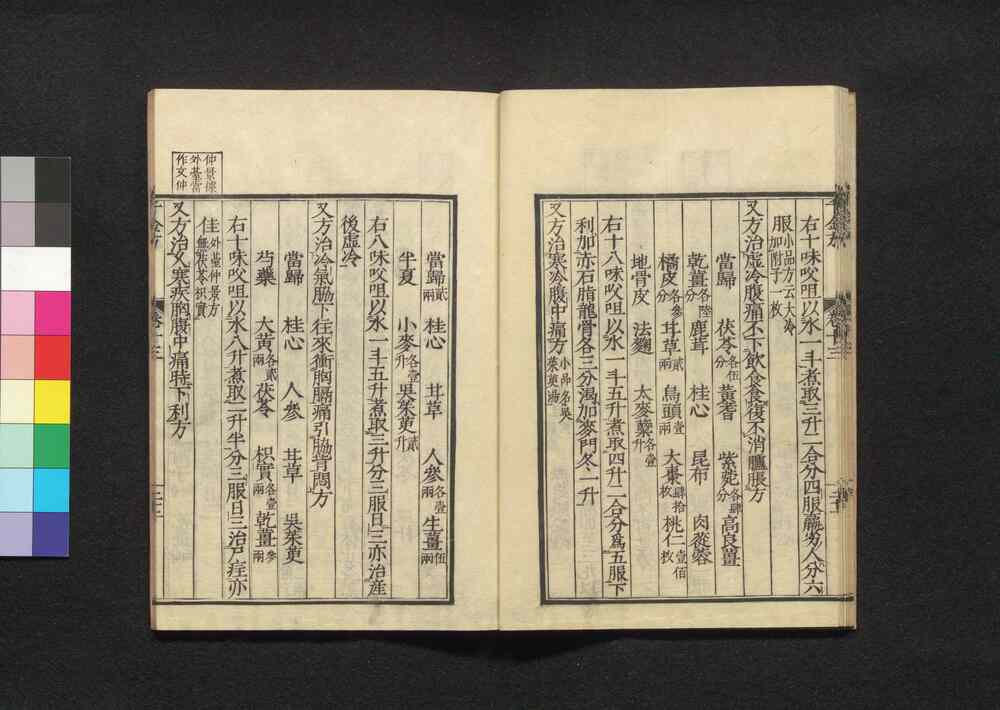 右十味㕮咀以水一斗煮取三升二合分四服羸劣人分六
服小品方云大冷加附子一枚
又方治虛冷腹痛不下飲食食復不消臚脹方
當歸 茯苓各伍分 黃耆 紫菀各肆分 高良薑
乾薑各陸分 鹿茸 桂心 昆布 肉蓯蓉
橘皮各參分 甘草貳兩 烏頭壹兩 大棗肆拾枚 桃仁壹佰枚
地骨皮 法麴 大麥蘗各壹升
右十八味㕮咀以水一斗五升煮取四升二合分爲五服下
利加赤石脂龍骨各三分渴加麥門冬一升
又方治寒冷腹中痛方小品名吳茱萸湯
當歸貳兩 桂心 甘草 人參各壹兩 生薑伍兩
半夏 小麥各壹升 吳茱萸貳升
右八味㕮咀以水一斗五升煮取三升分三服日三亦治產
後虛冷
又方治冷氣脇下往來衝胸膈痛引脇背悶方
當歸 桂心 人參 甘草 吳茱萸
芍藥 大黃各貳兩 茯苓 枳實各壹兩 乾薑參兩
右十味㕮咀以水八升煮取二升半分三服日三治尸疰亦
佳外臺仲景方無茯苓枳實
仲景據外臺當作文仲
又方治久寒疾胸腹中痛時下利方